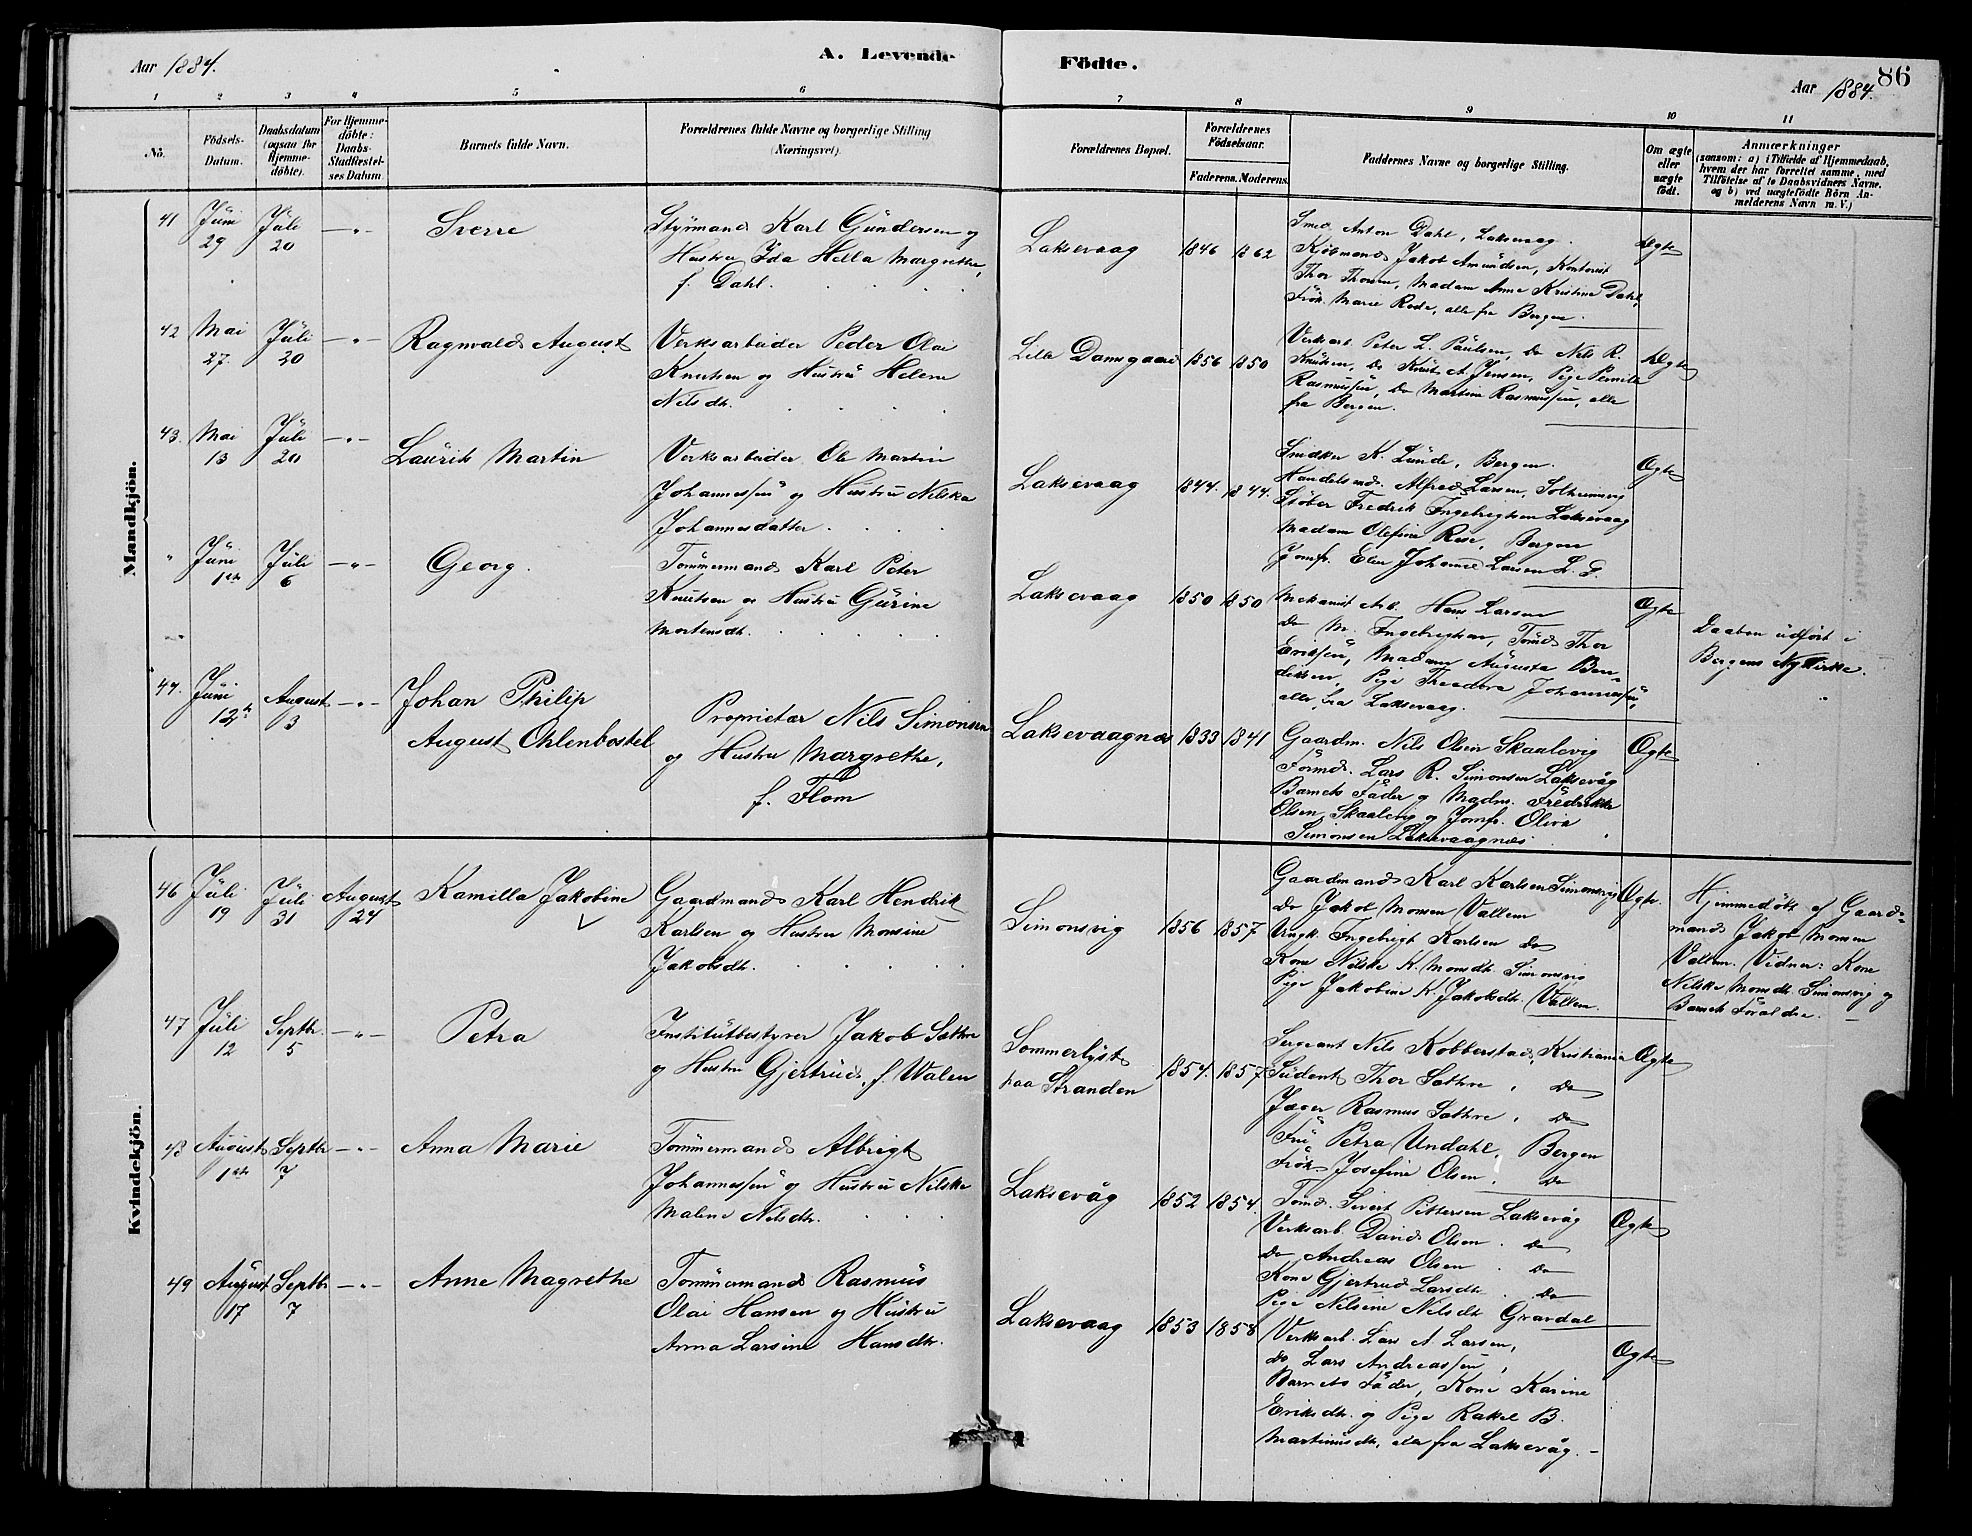 Aar 1884.
A. Levende
Födte.
86
Aar 1884.
1 2 3 4 5 6 7 8 9 10 11
No.
Födsels-
Datum.
Daabsdatum
(ogsaa for
Hjemme-
döbte).
For Hjemme-
döbte:
Daabs-
Stadfæstel-
ses Datum
Barnets fulde Navn.
Forældrenes fulde Navne og borgerlige Stilling
(Næringsvei).
Forældrenes Bopæl.
Forældrenes
Födselsaar.
Faderens. Moderens.
Faddernes Navne og borgerlige Stilling.
Om ægte
eller
uægte
födt.
Anmærkninger
(saasom: a) i Tilfælde af Hjemmedaab,
hvem der har forrettet samme, med
Tilföielse af to Daabsvidners Navne,
og b) ved uægtefödte Börn An-
melderens Navn m. V.)
Mandkjön.
41
Juni
29
Juli
20
-"-
Sverre
Styrmand Karl Gundersen og
Hustru Ida Hella Margrethe,
f. Dahl.
Laksevaag
1846 1862
Smed Anton Dahl, Laksevaag.
Kjöbmand Jakob Amundsen, Kontorist
Thor Thomsen, Madam Anne Kristine Dahl,
Frök. Marie Rode, alle fra Bergen.
Ægte
42
Mai
27.
Juli
20
-"-
Ragnvald August
Verksarbeider Peder Olai
Knutsen og Hustru Helene
Nilsdtr.
Lille Damsgaard
1856 1850
Verksarb. Peter L. Paulsen, Do Nils R.
Knutsen, Do Knut A. Jensen, Pige Pernille
Rasmussen, Do Martine Rasmussen, alle
fra Bergen.
Ægte
43.
Mai
13
Juli
20
-"-
Laurits Martin
Verksarbeider Ole Martin
Johannessen og Hustru Nilska
Johannesdatter.
Laksevaag
1844. 1844.
Snidker K. Lunde, Bergen.
Handelsmd. Alfred Larsen, Solheimsvig
Støber Fredrik Ingebrigtsen Laksevaag
Madam Olefine Rose, Bergen
Jomfr. Elen Johanne Larsen L. D.
Ægte
"
Juni
1ste
Juli
6
-"-
Georg.
Tömmermand Karl Peter
Knutsen og Hustru Gurine
Mortensdtr.
Laksevaag
1850 1850
Mekanisk Arb. Hans Larsen
Do M. Ingebrigtsen, Tömd. Thor
Eriksen, Madam Augusta Ben-
diksen, Pige Theodora Johannessen,
alle fra Laksevaag.
Ægte
Daaben udført i
Bergens Nykirke.
44.
Juni
12te
August
3
-"-
Johan Philip
August Ohlenbostel
Proprietær Nils Simonsen
og Hustru Margrethe,
f. Flom
Laksevaagnes
1833 1841
Gaardm. Nils Olsen Skaalevig
Formd. Lars R. Simonsen Laksevåg
Barnets Fader og Madm. Fredrikke
Olsen Skaalevig og Jomfr. Oliva
Simonsen Laksevaagnes
Ægte
Kvindekjön.
46
Juli
19
Juli
31
August
24
Kamilla Jakobine
Gaardmand Karl Hendrik
Karlsen og Hustru Monsine
Jakobsdtr.
Simonsvig
1856 1857
Gaardmand Karl Karlsen Simonsvig
Do Jakob Monsen Vallem
Ungk. Ingebrigt Karlsen Do
Kone Nilske K. Monsdtr. Simonsvig
Pige Jakobine K. Jakobsdtr. Vallem.
Ægte.
Hjemmedöbt af Gaard-
mand Jakob Monsen
Vallem. Vidner: Kone
Nilske Monsdtr. Simonsvig og
Barnets Forældre.
47
Juli
12
Septbr.
5
-"-
Petra
Institutbestyrer Jakob Sæthre
og Hustru Gjertrud, f. Walen
Sommerlyst
paa Stranden
1854. 1857
Sergeant Nils Kobberstad, Kristiania
Student Thor Sæthre, Do
Jæger Rasmus Sæthre, Do
Fru Petra Undahl, Bergen
Frök. Josefine Olsen, Do
Ægte
48
August
1ste
Septbr
7
-"-
Anna Marie
Tömmermand Albrigt
Johannessen og Hustru Nilske
Malene Nilsdtr.
Laksevåg
1852 1854.
Tömd. Sivert Pettersen Laksevåg
Verksarb. David Olsen. Do
Do Andreas Olsen. Do
Kone Gjertrud Larsdtr. Do
Pige Nilsine Nilsdtr Gravdal
Ægte
49
August
17
Septbr
7
-"-
Anne Magrethe
Tömmermand Rasmus
Olai Hansen og Hustru
Anna Larsine Hansdtr.
Laksevaag
1853 1858
Verksarb. Lars A. Larsen,
Do Lars Andreassen,
Barnets Fader, Kone Karine
Eriksdtr. og Pige Rakel B.
Martinusdtr, alle fra Laksevåg.
Ægte